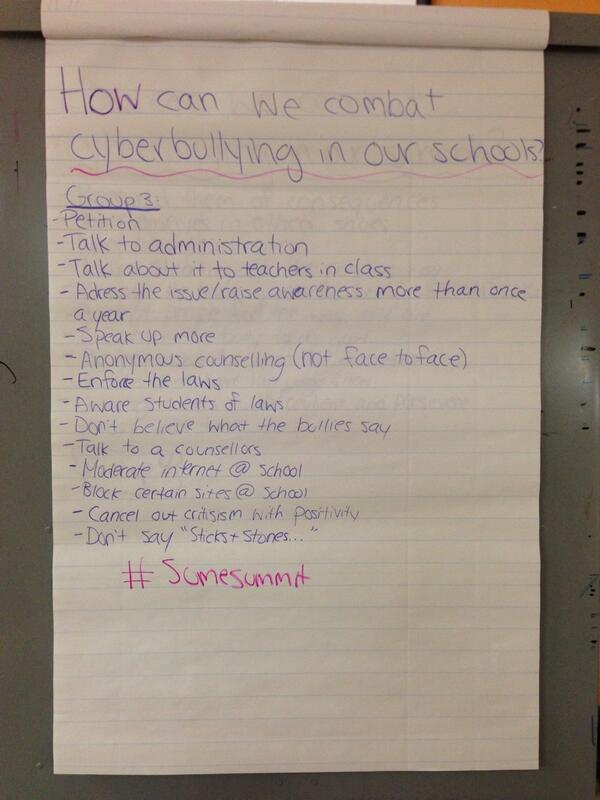 How can we combat
cyberbullying in our schools?
Group 3:
- Petition
- Talk to administration
- Talk about it to teachers in class
- Adress the issue/raise awareness more than once
a year
- Speak up more
- Anonymous counselling (not face to face)
- Enforce the laws
- Aware students of laws
- Don't believe what the bullies say
- Talk to a counsellors
- Moderate internet @ school
- Block certain sites @ school
- Cancel out critisism with positivity
- Don't say "Sticks + Stones..."
# Somesummit